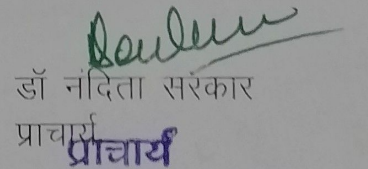 डॉ नंदिता सरकार
प्राचार्य
प्राचार्य